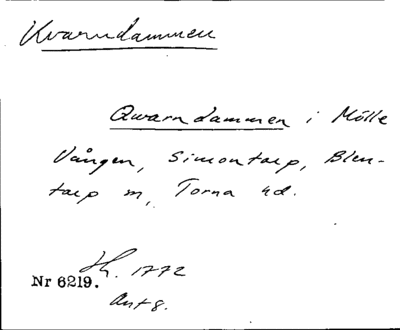 Kvarndammen
Qvarndammen i Mölle
Vången, Simontorp, Blen-
tarp sn, Torna hd.
Lh. 1772
Nr 6219.
Akt 8.